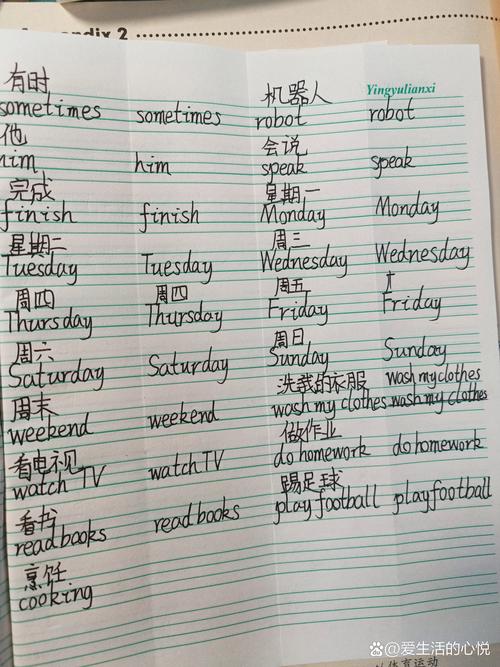 Appendix 2
有时 机器人 Yingyulianxi
sometimes sometimes robot robot
他 会说
him him speak speak
完成 星期一
finish finish Monday Monday
星期二 周三
Tuesday Tuesday Wednesday Wednesday
周四 周四 周五
Thursday Thursday Friday Friday
周六 周日
Saturday Saturday Sunday Sunday
周末 洗我的衣服 wash my clothes
weekend weekend wash my clothes wash my clothes
看电视 做作业
watch TV watch TV do homework do homework
看书 踢足球
read books read books play football play football
烹饪
cooking
体育运动
爱生活的心悦